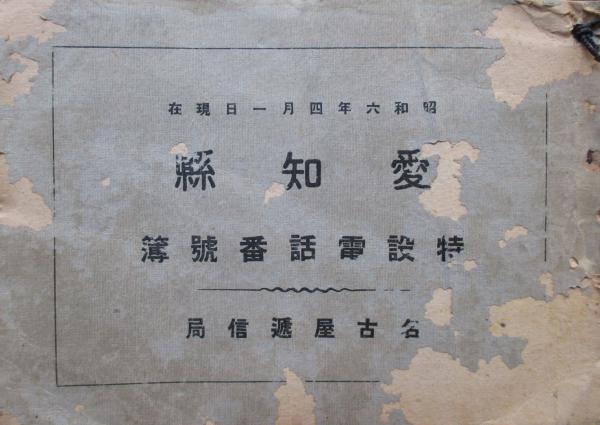 昭和六年四月一日現在
愛知縣
特設電話番號簿
名古屋遞信局